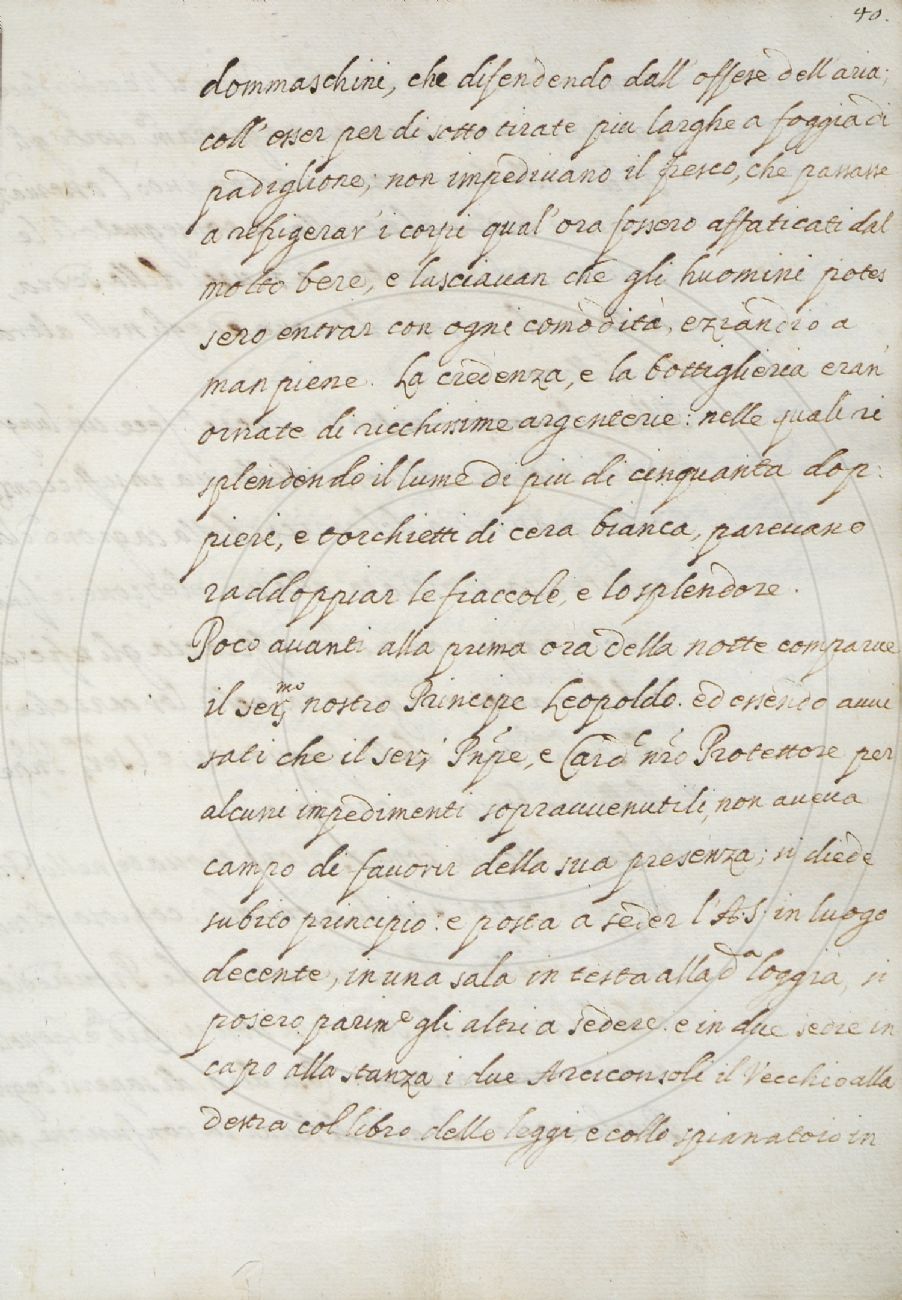 40.
dommaschini, che difendendo dall' offese dell aria;
coll' esser per di sotto tirate piu larghe a foggia di
padiglione; non impedivano il fresco, che passasse
a refigerar' i corpi qual' ora fossero affaticati dal
molto bere, e lasciavan che gli huomini potes
sero entrar con ogni comodità, eziandio a
man piene. La credenza, e la bottiglieria eran'
ornate di ricchissime argenterie: nelle quali ri
splendendo il lume di piu di cinquanta dop:
pieri, e torchietti di cera bianca, parevano
raddoppiar le fiaccole, e lo splendore.
Poco avanti alla prima ora della notte comparve
il Ser.mo nostro Principe Leopoldo. ed essendo avvi
sati che il Ser: Pnpe, e Card.l nro Protettore per
alcuni impedimenti sopravvenutili, non aveva
campo di favorir della sua presenza; si diede
subito principio: e posta a seder l'A.S. in luogo
decente, in una sala in testa alla d.a loggia, si
posero parim.e gli altri a sedere. e in due sedie in
capo alla stanza i due Arciconsoli il Vecchio alla
destra col libro delle leggi e collo spianatoio in